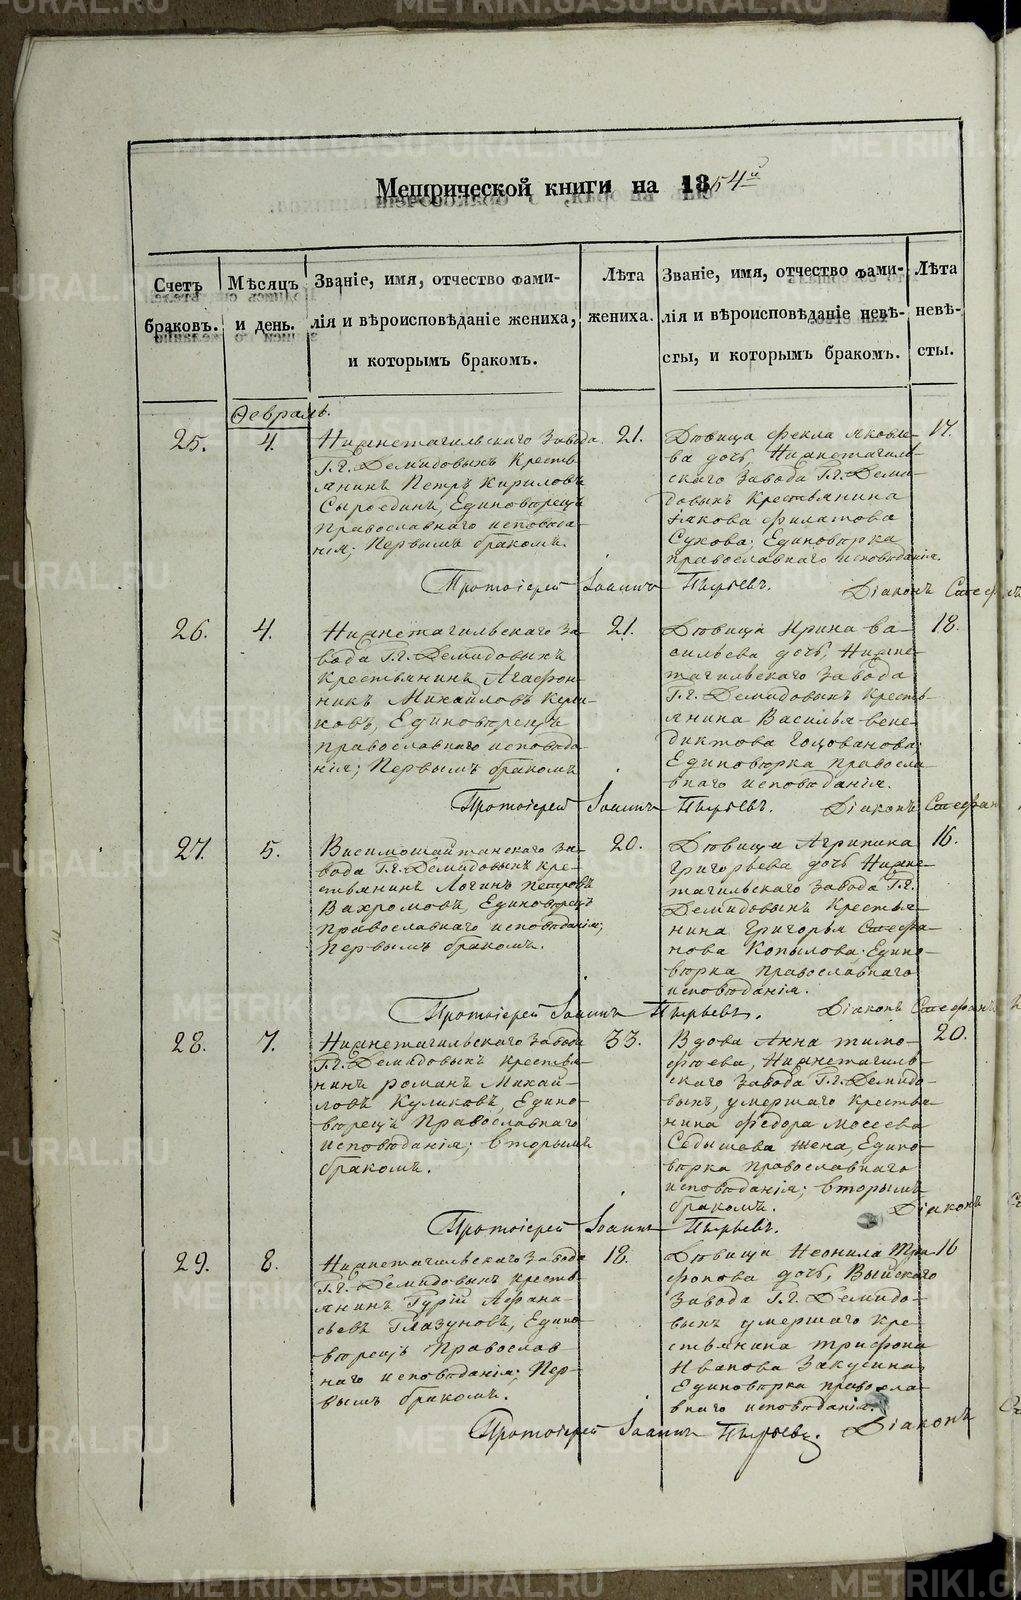 Метрической книги на 1854й
Счетъ браковъ.
Мѣсяцъ и день.
Званіе, имя, отчество фами-
лія и вѣроисповѣданіе жениха,
и которымъ бракомъ.
Лѣта жениха.
Званіе, имя, отчество фами-
лія и вѣроисповѣданіе невѣ-
сты, и которымъ бракомъ.
Лѣта невѣ-
сты.
Февраль.
25.
4.
Нижнетагильскаго завода
Г.г. Демидовыхъ Кресть-
янинъ Петръ Кириловъ
Сыроединъ, Единоверецъ
Православнаго исповѣда-
нія; Первымъ бракомъ.
21.
Дѣвица Фекла Яковле-
ва дочь, Нижнетагиль-
скаго завода Г.г. Деми-
довыхъ Крестьянина
Іякова Филатова
Сухова; Единовѣрка
православнаго исповѣданія.
17.
Протоіерей Іоаннъ Пырьевъ. Діаконъ Стефанъ
26.
4.
Нижнетагильскаго за-
вода Г.г. Демидовыхъ
Крестьянинъ Агафон-
никъ Михайловъ
Единовѣрецъ
православнаго исповѣда-
нія; Первымъ бракомъ
21.
Дѣвица Ирина Ва-
сильева дочь, Нижне-
тагильскаго завода
Г.г. Демидовыхъ Кресть-
янина Василья Вене-
диктова Голованова;
Единовѣрка правосла-
внаго исповѣданія.
18.
Протоіерей Іоаннъ Пырьевъ. Діаконъ Стефанъ
27.
5.
Висимошайтанскаго за-
вода Г.г. Демидовыхъ кре-
стьянинъ Логинъ Петровъ
Вахромовъ, Единоверецъ
Православнаго исповѣданія;
Первымъ бракомъ.
20.
Дѣвица Агрипина
Григорьева дочь Нижне-
тагильскаго завода Г.г.
Демидовыхъ Крестья-
нина Григорья Стефа-
нова Копылова; Едино-
вѣрка православнаго
исповѣданія.
16.
Протоіерей Іоаннъ Пырьевъ. Діаконъ Стефанъ
28.
7.
Нижнетагильскаго завода
Г.г. Демидовыхъ крестья-
нинъ Романъ Михай-
ловъ Куликовъ, Едино-
вѣрецъ Православнаго
исповѣданія; вторымъ
бракомъ.
33.
Вдова Анна Тимо-
фѣева, Нижнетагиль-
скаго завода Г.г. Демидо-
выхъ, умершаго крестья-
нина Федора Мосеева
Седышева жена, Едино-
вѣрка православнаго
исповѣданія; вторымъ
бракомъ.
20.
Протоіерей Іоаннъ Пырьевъ. Діаконъ
29.
8.
Нижнетагильскаго завода
Г.г. Демидовыхъ Кресть-
янинъ Гурій Афана-
сьевъ Глазуновъ, Едино-
вѣрецъ Православ
наго исповѣданія; Пер-
вымъ бракомъ.
18.
Дѣвица Неонила Три-
фонова дочь, Выйскаго
завода Г.г. Демидо-
выхъ умершаго кре-
стьянина Трифона
Иванова Закусина,
Единовѣрка правосла-
внаго исповѣданія.
16
Протоіерей Іоаннъ Пырьевъ. Діаконъ